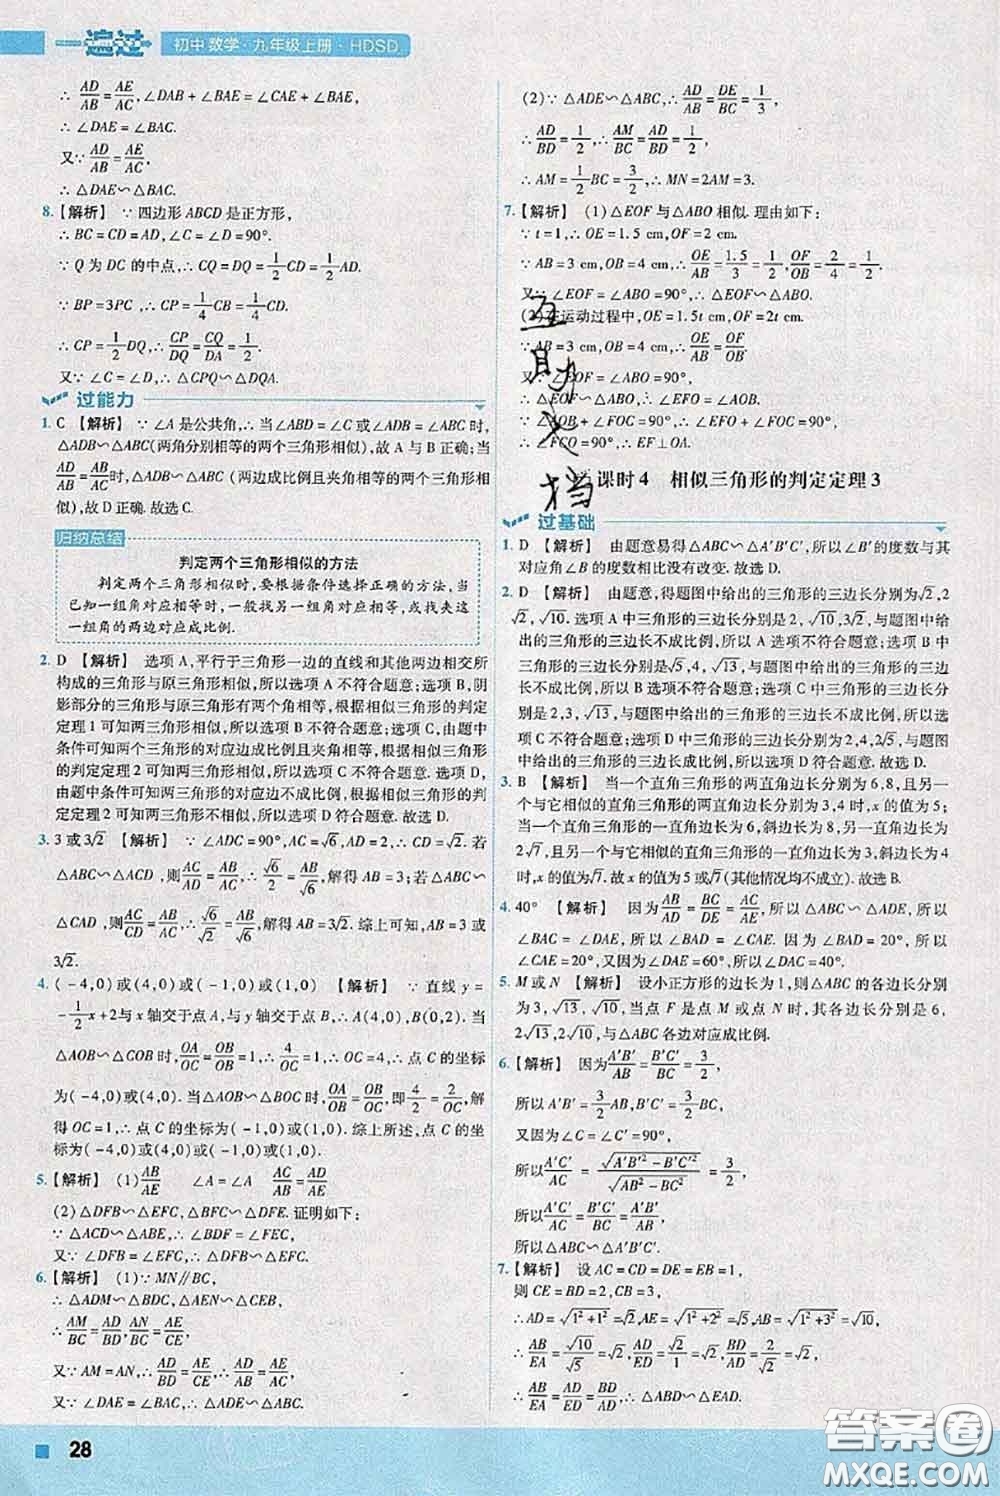 一遍过 初中 数学·九年级上册·HDSD
∴ AD/AB = AE/AC, ∠DAB + ∠BAE = ∠CAE + ∠BAE,
∴ ∠DAE = ∠BAC.
又∵ AD/AB = AE/AC,
∴ △DAE∽△BAC.
8.【解析】 ∵ 四边形 ABCD 是正方形,
∴ BC = CD = AD, ∠C = ∠D = 90°.
∵ Q 为 DC 的中点, ∴ CQ = DQ = 1/2CD = 1/2AD.
∵ BP = 3PC, ∴ CP = 1/4CB = 1/4CD.
∴ CP = 1/2DQ, ∴ CP/DQ = CQ/DA = 1/2.
又∵ ∠C = ∠D, ∴ △CPQ∽△DQA.
过能力
1. C 【解析】 ∵ ∠A 是公共角, ∴ 当∠ABD = ∠C 或∠ADB = ∠ABC 时,
△ADB∽△ABC(两角分别相等的两个三角形相似), 故 A 与 B 正确; 当
AD/AB = AB/AC时, △ADB∽△ABC (两边成比例且夹角相等的两个三角形相
似), 故 D 正确. 故选 C.
归纳总结
判定两个三角形相似的方法
判定两个三角形相似时, 要根据条件选择正确的方法, 当
已知一组角对应相等时, 一般找另一组角对应相等, 或找夹这
一组角的两边对应成比例.
2. D 【解析】 选项 A, 平行于三角形一边的直线和其他两边相交所
构成的三角形与原三角形相似, 所以选项 A 不符合题意; 选项 B, 阴
影部分的三角形与原三角形有两个角相等, 根据相似三角形的判定
定理 1 可知两三角形相似, 所以选项 B 不符合题意; 选项 C, 由题中
条件可知两三角形的对应边成比例且夹角相等, 根据相似三角形
的判定定理 2 可知两三角形相似, 所以选项 C 不符合题意; 选项 D,
由题中条件可知两三角形的对应边成比例, 根据相似三角形的判
定定理 2 可知两三角形不相似, 所以选项 D 符合题意. 故选 D.
3. 3 或 3√2 【解析】 ∵ ∠ADC = 90°, AC = √6, AD = 2, ∴ CD = √2. 若
△ABC∽△ACD, 则AC/AD = AB/AC, ∴ √6/2 = AB/√6, 解得 AB = 3; 若△ABC∽
△CAD, 则AC/CD = AB/AC, ∴ √6/√2 = AB/√6, 解得 AB = 3√2. 综上可知, AB = 3 或
3√2.
4. (-4,0)或(4,0)或(-1,0)或(1,0) 【解析】 ∵ 直线 y =
-1/2x + 2 与 x 轴交于点 A, 与 y 轴交于点 B, ∴ A(4,0), B(0,2). 当
△AOB∽△COB 时, OA/OC = OB/OB = 1, ∴ 4/OC = 1, ∴ OC = 4, ∴ 点 C 的坐标
为(-4,0)或(4,0). 当△AOB∽△BOC 时, OA/OB = OB/OC, 即4/2 = 2/OC,
解得 OC = 1, ∴ 点 C 的坐标为(-1,0)或(1,0). 综上所述, 点 C 的坐标
为(-4,0)或(4,0)或(-1,0)或(1,0).
5.【解析】 (1)AB/AE ∠A = ∠A AB/AE
(2)△DFB∽△EFC, △BFC∽△DFE. 证明如下:
∵ △ACD∽△ABE, ∴ ∠BDF = ∠FEC,
又∵ ∠DFB = ∠EFC, ∴ △DFB∽△EFC.
6.【解析】 (1)∵ MN∥BC,
∴ △ADM∽△BDC, △AEN∽△CEB,
∴ AM/BC = AD/BD, AN/BC = AE/CE,
又∵ AM = AN, ∴ AD/BD = AE/CE, ∴ AD/AB = AE/AC,
又∵ ∠DAE = ∠BAC, ∴ △ADE∽△ABC.
(2)∵ △ADE∽△ABC, ∴ AD/AB = DE/BC = 1/3,
∴ AD/BD = 1/2, ∴ AM/BC = AD/BD = 1/2,
∴ AM = 1/2BC = 3/2, ∴ MN = 2AM = 3.
7.【解析】 (1)△EOF 与△ABO 相似. 理由如下:
∵ t = 1, ∴ OE = 1.5 cm, OF = 2 cm.
∵ AB = 3 cm, OB = 4 cm, ∴ OE/AB = 1.5/3 = 1/2, OF/OB = 2/4 = 1/2.
又∵ ∠EOF = ∠ABO = 90°, ∴ △EOF∽△ABO.
(2)在运动过程中, OE = 1.5t cm, OF = 2t cm.
∵ AB = 3 cm, OB = 4 cm, ∴ OE/AB = OF/OB.
又∵ ∠EOF = ∠ABO = 90°,
∴ △EOF∽△ABO, ∴ ∠EFO = ∠AOB.
∵ ∠AOB + ∠FOC = 90°, ∴ ∠EFO + ∠FOC = 90°,
∴ ∠FCO = 90°, ∴ EF⊥OA.
课时 4 相似三角形的判定定理 3
过基础
1. D 【解析】 由题意易得△ABC∽△A'B'C', 所以∠B'的度数与其
对应角∠B 的度数相比没有改变. 故选 D.
2. D 【解析】 由题意, 得题图中给出的三角形的三边长分别为√2, 2
√2, √10. 选项 A 中三角形的三边长分别是 2, √10, 3√2, 与题图中给
出的三角形的三边长不成比例, 所以 A 选项不符合题意; 选项 B 中
三角形的三边长分别是√5, 4, √13, 与题图中给出的三角形的三边
长不成比例, 所以 B 选项不符合题意; 选项 C 中三角形的三边长分
别是 2, 3, √13, 与题图中给出的三角形的三边长不成比例, 所以 C
选项不符合题意; 选项 D 中三角形的三边长分别为 2, 4, 2√5, 与题
图中给出的三角形的三边长成比例, 所以 D 选项符合题意. 故选 D.
3. B 【解析】 当一个直角三角形的两直角边长分别为 6, 8, 且另一
个与它相似的直角三角形的两直角边长分别为 3, 4 时, x 的值为 5;
当一个直角三角形的一直角边长为 6, 斜边长为 8, 另一直角边长为
2√7, 且另一个与它相似的直角三角形的一直角边长为 3, 斜边长为 4
时, x 的值为√7. 故 x 的值为 5 或√7(其他情况均不成立). 故选 B.
4. 40° 【解析】 因为AB/AD = BC/DE = AC/AE, 所以△ABC∽△ADE, 所以
∠BAC = ∠DAE, 所以∠BAD = ∠CAE. 因为∠BAD = 20°, 所以
∠CAE = 20°, 又因为∠DAE = 60°, 所以∠DAC = 40°.
5. M 或 N 【解析】 设小正方形的边长为 1, 则△ABC 的各边长分别
为 3, √13, √10, 当点 F 是点 M 或点 N 时, △DEF 的各边长分别为 6,
2√13, 2√10, 与△ABC 各边对应成比例.
6.【解析】 因为A'B'/AB = B'C'/BC = 3/2,
所以 A'B' = 3/2AB, B'C' = 3/2BC,
又因为∠C = ∠C' = 90°,
所以A'C'/AC = √(A'B'² - B'C'²)/√(AB² - BC²) = 3/2,
所以A'C'/AC = B'C'/BC = A'B'/AB,
所以△ABC∽△A'B'C'.
7.【解析】 设 AC = CD = DE = EB = 1,
则 CE = BD = 2, CB = 3,
∴ AD = √(1² + 1²) = √2, AE = √(1² + 2²) = √5, AB = √(1² + 3²) = √10,
∴ AB/EA = √10/√5 = √2, AD/ED = √2/1 = √2, BD/AD = 2/√2 = √2,
∴ AB/EA = AD/ED = BD/AD, ∴ △ABD∽△EAD.
28
答案圈
MXQE.COM